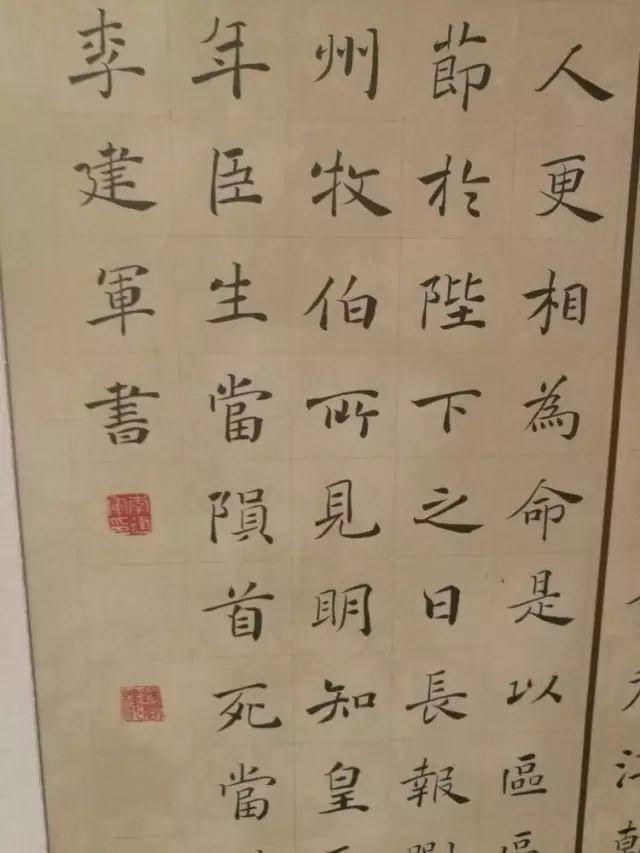 人更相為命是以區區
節於陛下之日長報
州牧伯所見明知皇
年臣生當隕首死當
李建軍書
李建軍印